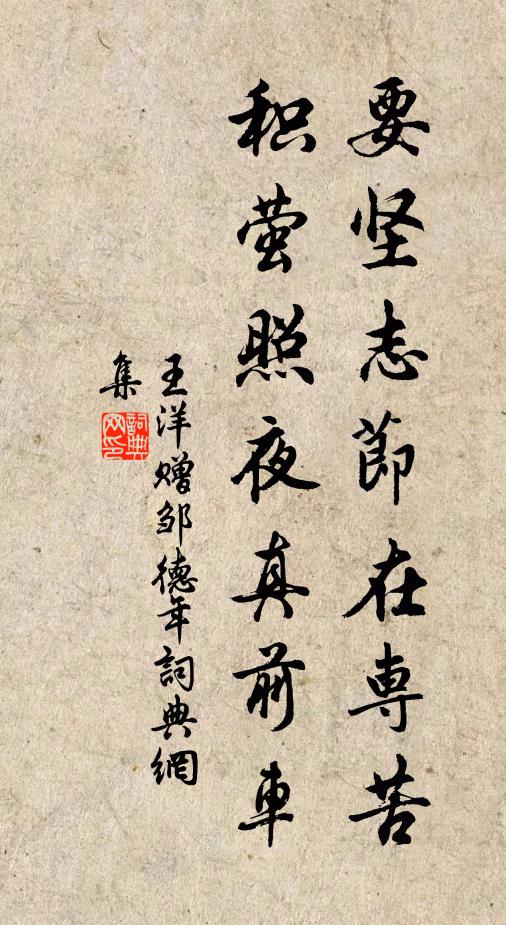 要坚志節在専苦
积萤照夜真前車
王洋赠邹德年詞典網
集
詞典网印